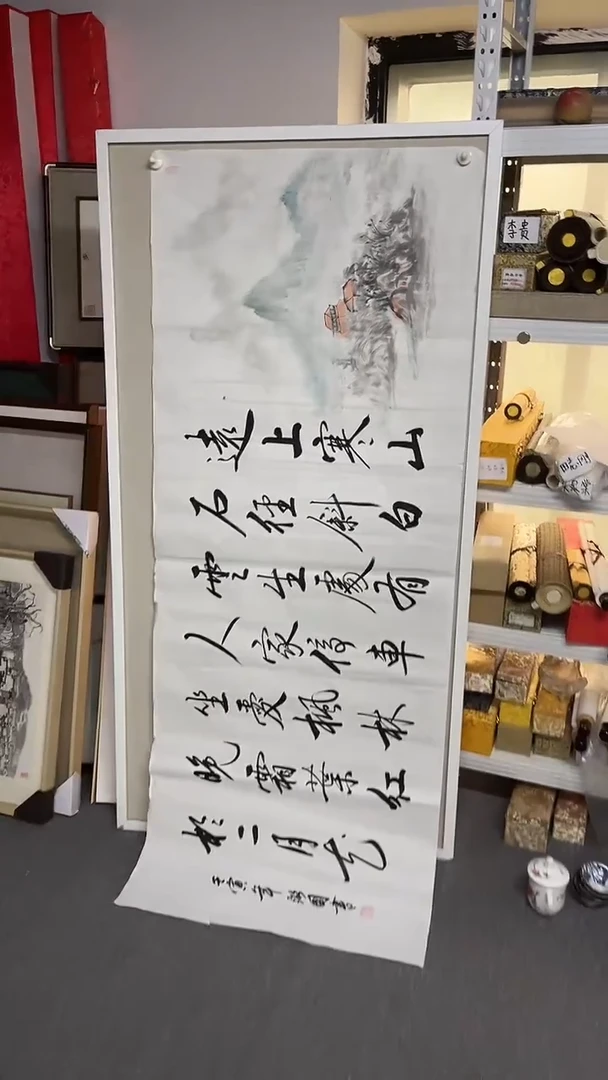 遠上寒山
石徑斜白
雲生處有
人家停車
坐愛楓林
晚霜葉紅
於二月花
壬寅年
國書
李贵